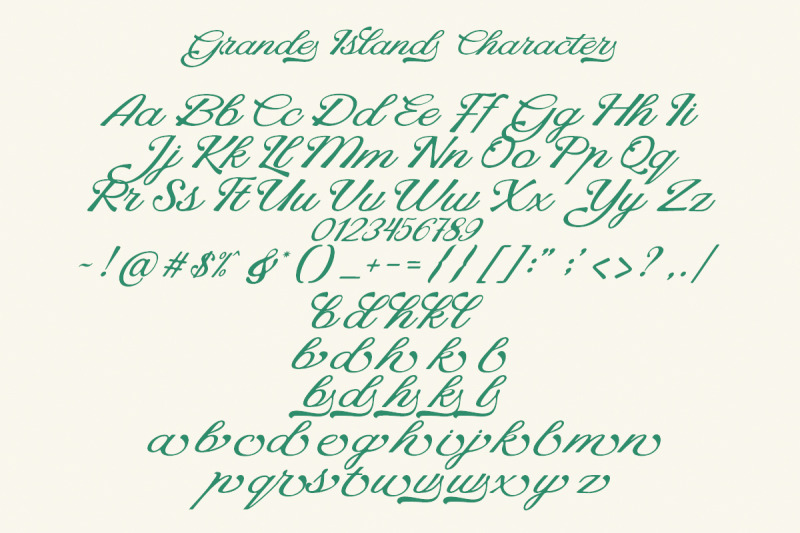 Grande Island Character
Aa Bb Cc Dd Ee Ff Gg Hh Ii
Jj Kk Ll Mm Nn Oo Pp Qq
Rr Ss Tt Uu Vv Ww Xx Yy Zz
0123456789
~ ! @ # $ % ^ & * ( ) _ + - = { } [ ] : " ; ' < > ? , . /
b d h k l
b d h k l
b d h k l
a b c d e g h i j k l m n
p q r s t u v w x y z